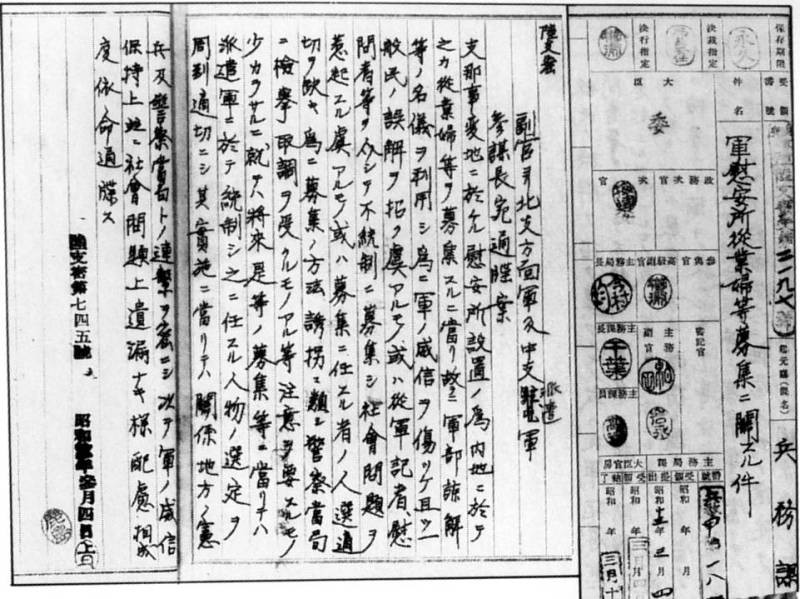 保存期限
永久
決裁指定
決行指定
番號
二一九七
件名
軍慰安所從業婦等募集ニ關スル件
大臣
委
次官
政務次官
主務局長
高級副官
主務課長
主務副官
書記官
千葉
主務課員
主務局課
兵務課
大臣官房
昭和 年 月
昭和十三年三月四
昭和 年 月
昭和 年三月十
陸支密
副官ヨリ北支方面軍及中支派遣軍
参謀長宛通牒案
支那事變地ニ於ケル慰安所設置ノ為内地ニ於テ
之カ従業婦等ヲ募集スルニ當リ故ラニ軍部諒解
等ノ名儀ヲ利用シ為ニ軍ノ威信ヲ傷ツケ且ツ一
般民ノ誤解ヲ招ク虞アルモノ或ハ従軍記者、慰
問者等ヲ介シテ不統制ニ募集シ社會問題ヲ
惹起スル虞アルモノ或ハ募集ニ任スル者ノ人選適
切ヲ欠キ為ニ募集ノ方法誘拐ニ類シ警察當局
ニ檢擧取調ヲ受クルモノアル等注意ヲ要スルモノ
少カラサルニ就テハ将来是等ノ募集等ニ當リテハ
派遣軍ニ於テ統制シ之ニ任スル人物ノ選定ヲ
周到適切ニシ其実施ニ當リテハ關係地方ノ憲
兵及警察當局トノ連繋ヲ密ニシ次テ軍ノ威信
保持上並ニ社會問題上遺漏ナキ様配慮相成
度依命通牒ス
陸支密第七四五號 昭和拾参年参月四日